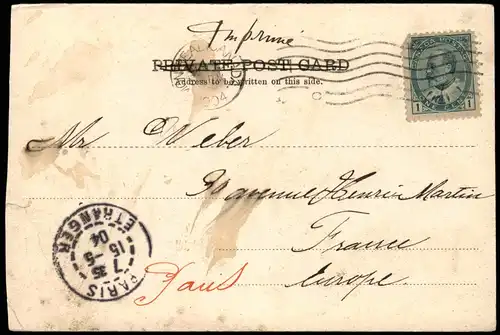 Imprimé
PRIVATE POST CARD
Address to be written on this side.
1 1
Mr Weber
90 avenue Henri Martin
France
Paris
Europe
PARIS
ETRANGER
15 -5
04